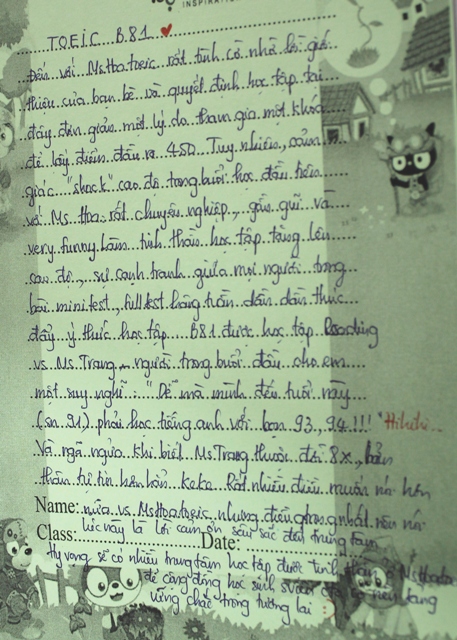 INSPIRATION
TOEIC B.81 ❤
Đến với Ms Hoa toeic rất tình cờ nhờ lời giới
thiệu của bạn bè và quyết định học tập tại
đây đơn giản một lý do tham gia một khóa
để lấy điểm đầu ra 450. Tuy nhiên, cảm
giác "shock" cao độ trong buổi học đầu tiên
với Ms Hoa: rất chuyên nghiệp, gần gũi và
very funny làm tinh thần học tập tăng lên
cao độ, sự cạnh tranh giữa mọi người trong
bài minitest, fulltest hàng tuần dần dần thúc
đẩy ý thức học tập. B81 được học tập Reading
vs Ms Trang, người trong buổi đầu cho em
một suy nghĩ: "Dễ mà mình đến tuổi này
(sn 91) phải học tiếng anh với bọn 93, 94!!!" Hihihi...
Và ngã ngửa khi biết Ms Trang thuộc đời 8x, bản
thân tự tin hơn hẳn keke. Rất nhiều điều muốn nói hơn
Name: nữa vs Ms Hoa toeic nhưng điều quan nhất nên nói
lúc này là lời cảm ơn sâu sắc đến trung tâm
Class: Date:
Hy vọng sẽ có nhiều trung tâm học tập được tinh Ms Hoatoeic
để cộng đồng học sinh svien
vững chắc trong tương lai :)